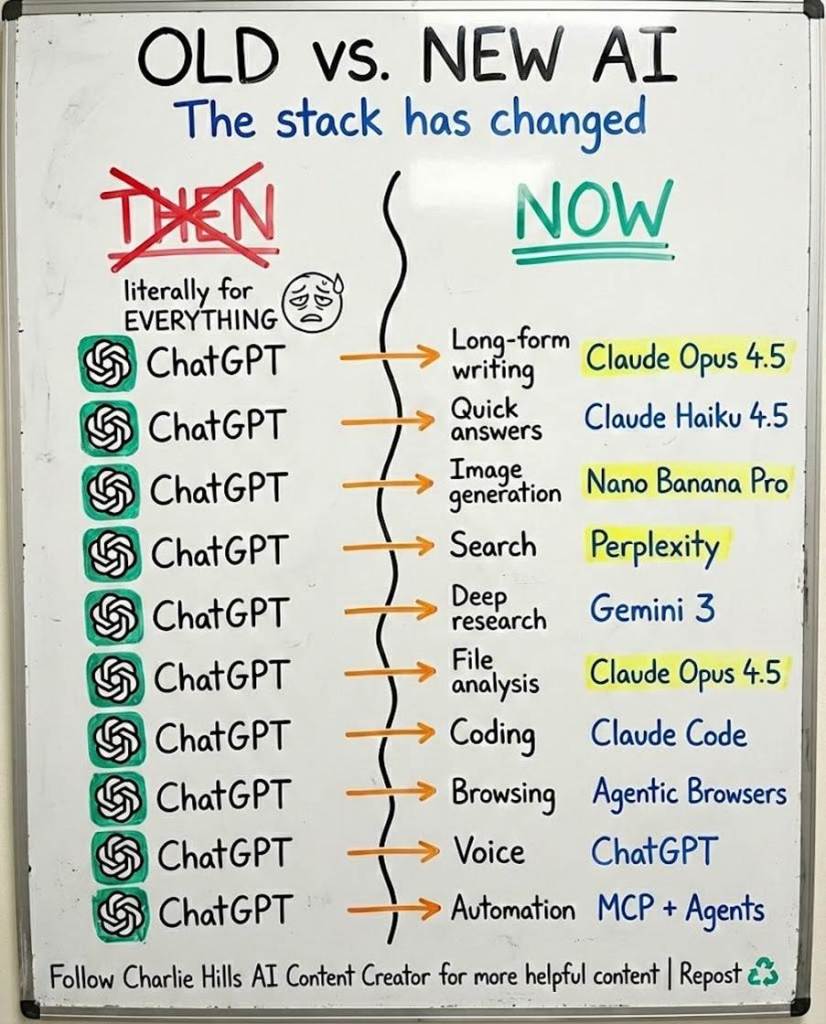 OLD vs. NEW AI
The stack has changed
THEN
NOW
literally for
EVERYTHING
ChatGPT
Long-form
writing
Claude Opus 4.5
ChatGPT
Quick
answers
Claude Haiku 4.5
ChatGPT
Image
generation
Nano Banana Pro
ChatGPT
Search
Perplexity
ChatGPT
Deep
research
Gemini 3
ChatGPT
File
analysis
Claude Opus 4.5
ChatGPT
Coding
Claude Code
ChatGPT
Browsing
Agentic Browsers
ChatGPT
Voice
ChatGPT
ChatGPT
Automation
MCP + Agents
Follow Charlie Hills AI Content Creator for more helpful content | Repost